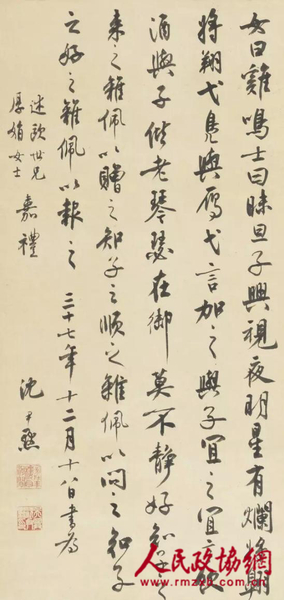 女曰雞鳴士曰昧旦子興視夜明星有爛將翱
將翔弋鳧與雁弋言加之與子宜之宜言飲
酒與子偕老琴瑟在御莫不靜好知子之
來之雜佩以贈之知子之順之雜佩以問之知子
之好之雜佩以報之 三十七年十二月十八日書為
述歐世兄
厚娟女士 嘉禮
沈尹默
人民政协網
www.rmzxb.com.cn